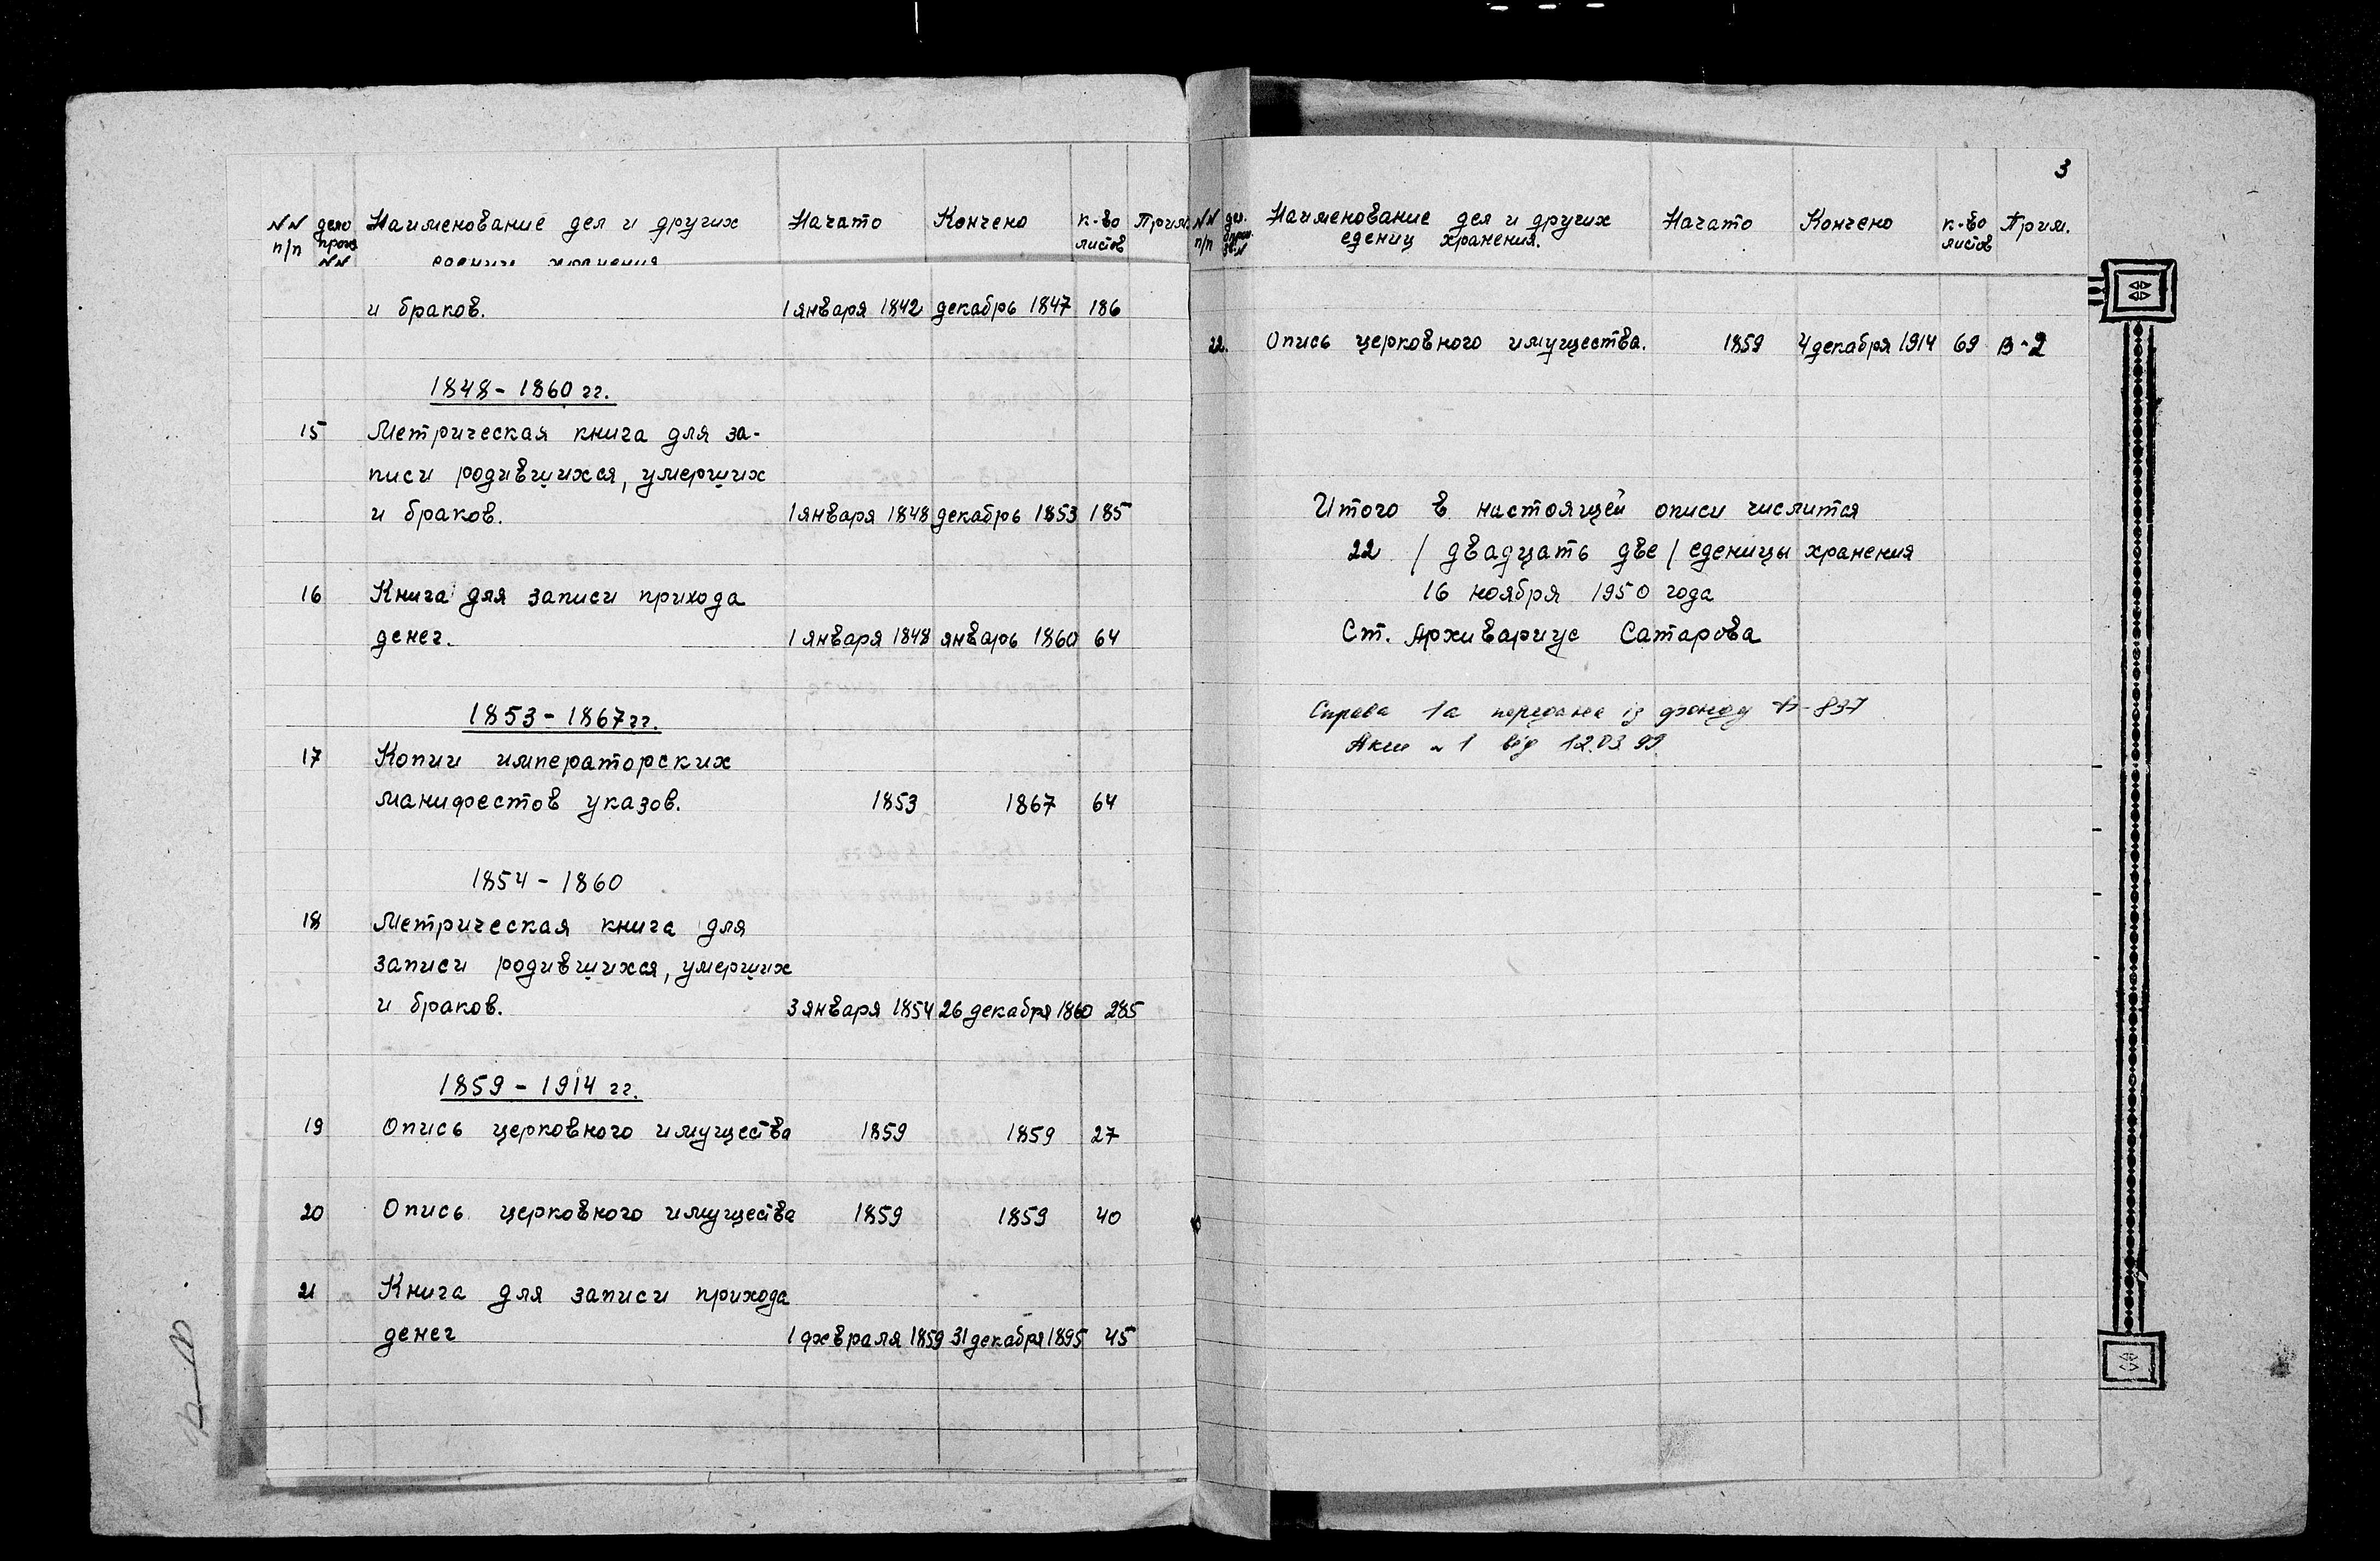 NN п/п дело произ. NN Наименование дел и других Начато Кончено к-во листов Прим.
единиц хранения
и браков. 1 января 1842 декабрь 1847 186
1848 - 1860 гг.
15 Метрическая книга для за-
писи родившихся, умерших
и браков. 1 января 1848 декабрь 1853 185
16 Книга для записи прихода
денег. 1 января 1848 январь 1860 64
1853 - 1867 гг.
17 Копии императорских
манифестов указов. 1853 1867 64
1854 - 1860
18 Метрическая книга для
записи родившихся, умерших
и браков. 3 января 1854 26 декабря 1860 285
1859 - 1914 гг.
19 Опись церковного имущества 1859 1859 27
20 Опись церковного имущества 1859 1859 40
21 Книга для записи прихода
денег 1 февраля 1859 31 декабря 1895 45
3
NN п/п Наименование дел и других Начато Кончено к-во листов Прим.
едениц хранения.
22. Опись церковного имущества. 1859 4 декабря 1914 69 В-2
Итого в настоящей описи числится
22 / двадцать две / еденицы хранения
16 ноября 1950 года
Ст. Архивариус Сатарова
Справа 1а передана із фонду 837
Акт № 1 від 12.03.99.